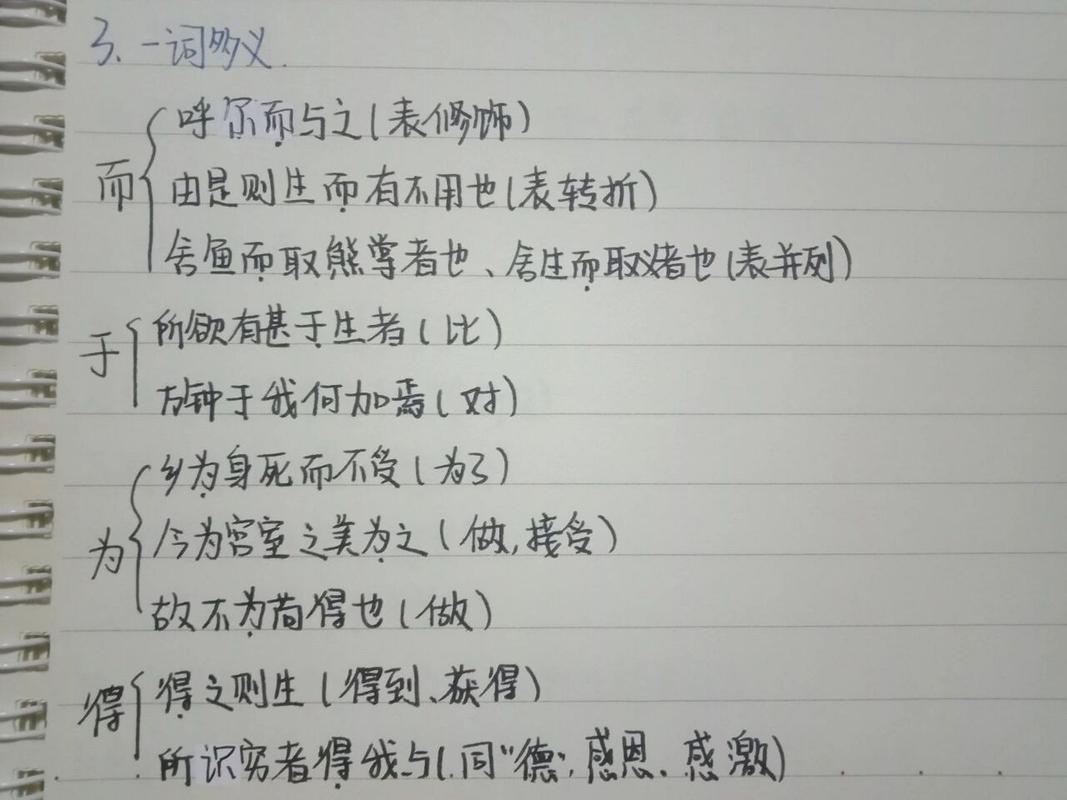 3、一词多义.
而
呼尔而与之(表修饰)
由是则生而有不用也(表转折)
舍鱼而取熊掌者也、舍生而取义者也(表并列)
于
所欲有甚于生者(比)
万钟于我何加焉(对)
为
乡为身死而不受(为了)
今为宫室之美为之(做,接受)
故不为苟得也(做)
得
得之则生(得到、获得)
所识穷者得我与(同“德”,感恩、感激)